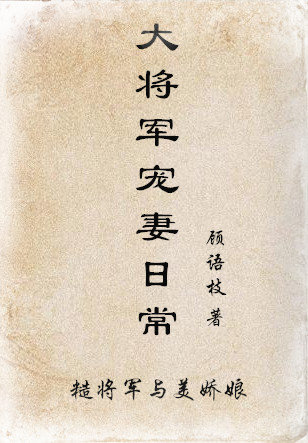 大将军宠妻日常
顾语枝 著
糙将军与美娇娘